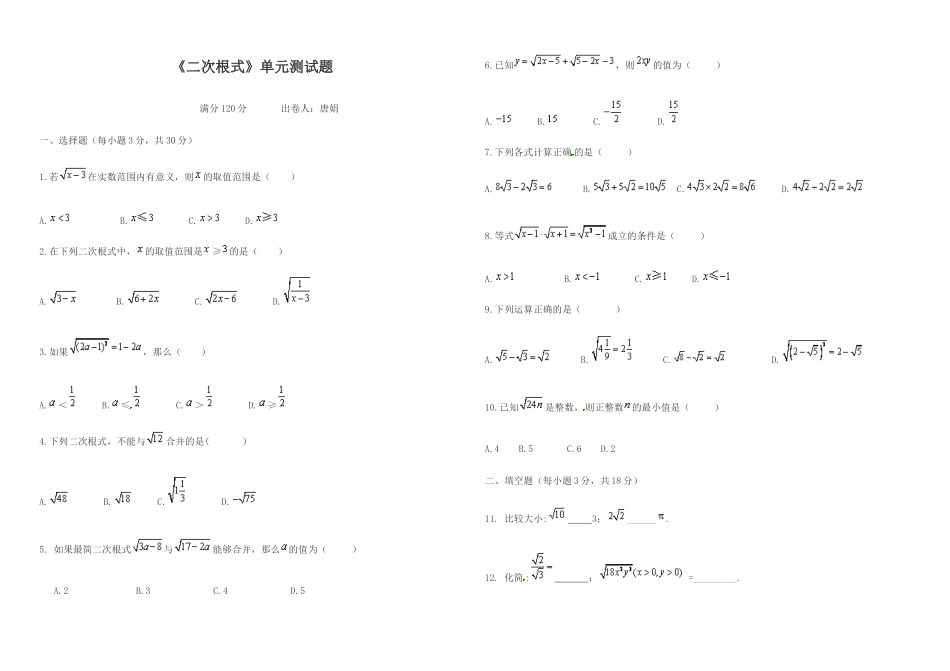 《二次根式》单元测试题
满分 120 分 出卷人：唐娟
一、选择题（每小题 3 分，共 30 分）
1.若√(x−3)在实数范围内有意义，则 x 的取值范围是（ ）
A. x<3 B. x≤3 C. x>3 D. x≥3
2.在下列二次根式中，x 的取值范围是 x ≥3 的是（ ）
A. √(3−x) B. √(6+2x) C. √(2x−6) D. √(1/(x−3))
3.如果√((2a−1)²)=1−2a，那么（ ）
A. a＜1/2 B. a≤1/2 C. a＞1/2 D. a≥1/2
4.下列二次根式，不能与√12 合并的是( )
A. √48 B. √18 C. √(1 1/3) D. −√75
5. 如果最简二次根式√(3a−8)与√(17−2a)能够合并，那么 a 的值为（ ）
A.2 B.3 C.4 D.5
6.已知 y=√(2x−5)+√(5−2x)−3，则 2xy 的值为（ ）
A. −15 B. 15 C. −15/2 D. 15/2
7.下列各式计算正确的是（ ）
A. 8√3−2√3=6 B. 5√3+5√2=10√5 C. 4√3×2√2=8√6 D. 4√2÷2√2=2√2
8.等式√(x−1)·√(x+1)=√(x²−1)成立的条件是（ ）
A. x>1 B. x<−1 C. x≥1 D. x≤−1
9.下列运算正确的是（ ）
A. √5−√3=√2 B. √(4 1/9)=2 1/3 C. √8−√2=√2 D. √((2−√5)²)=2−√5
10.已知√(24n)是整数，则正整数 n 的最小值是（ ）
A.4 B.5 C.6 D.2
二、填空题（每小题 3 分，共 18 分）
11. 比较大小：√10 ______3；2√2 ______π.
12. 化简：√2/√3= _______；√(18x²y³)(x>0,y>0) =_________.